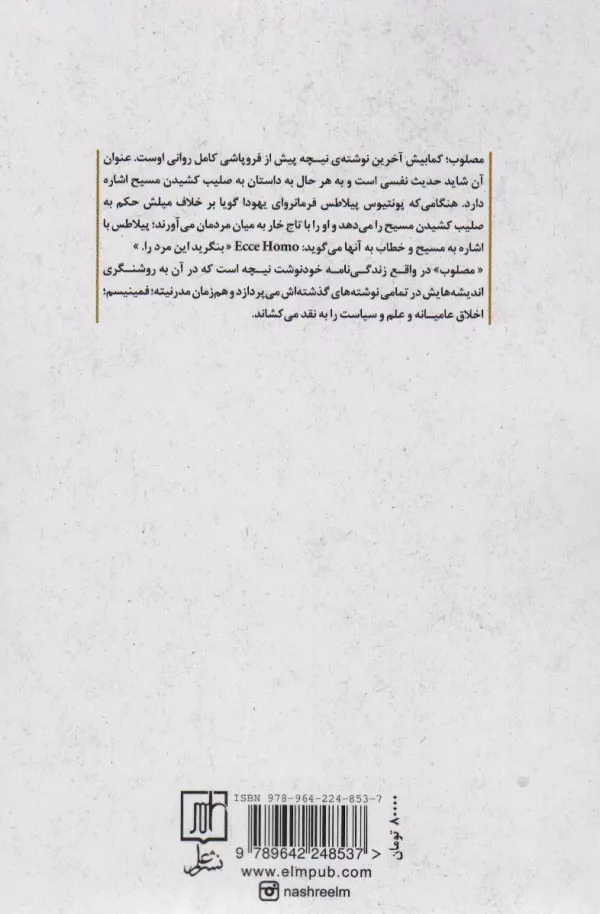 مصلوب؛ کمابیش آخرین نوشته‌ی نیـچه پیش از فروپاشی کامل روانی اوست. عنوان
آن شاید حدیث نفسی است و به هر حال به داستان به صلیب کشیدن مسیح اشاره
دارد. هنگامی‌که پونتیوس پیلاطس فرمانروای یهودا گویا بر خلاف میلش حکم به
صلیب کشیدن مسیح را می‌دهد و او را با تاج خار به میان مردمان می‌آورند؛ پیلاطس با
اشاره به مسیح و خطاب به آنها می‌گوید: Ecce Homo «بنگرید این مرد را. »
« مصلوب» در واقع زندگی‌نامه خودنوشت نیچه است که در آن به روشنگری
اندیشه‌هایش در تمامی نوشته‌های گذشته‌اش می‌پردازد و هم‌زمان مدرنیته؛ فمینیسم؛
اخلاق عامیـانه و علم و سیاست را به نقد می‌کشاند.
ISBN 978-964-224-853-7
9 789642 248537 >
۸۰۰۰۰ تومان
نشر علم
www.elmpub.com
nashreelm